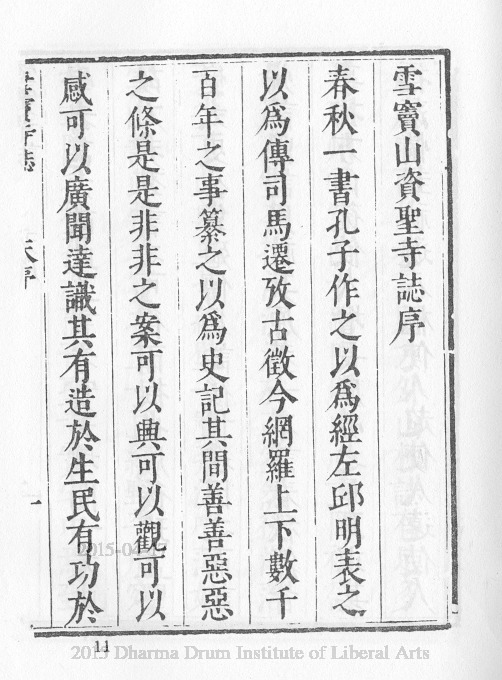 雪竇山資聖寺誌序
春秋一書孔子作之以爲經左邱明表之
以爲傳司馬遷攷古徵今網羅上下數千
百年之事纂之以爲史記其間善善惡惡
之條是是非非之案可以興可以觀可以
感可以廣聞達識其有造於生民有功於
天序
一
11
2015 Dharma Drum Institute of Liberal Arts